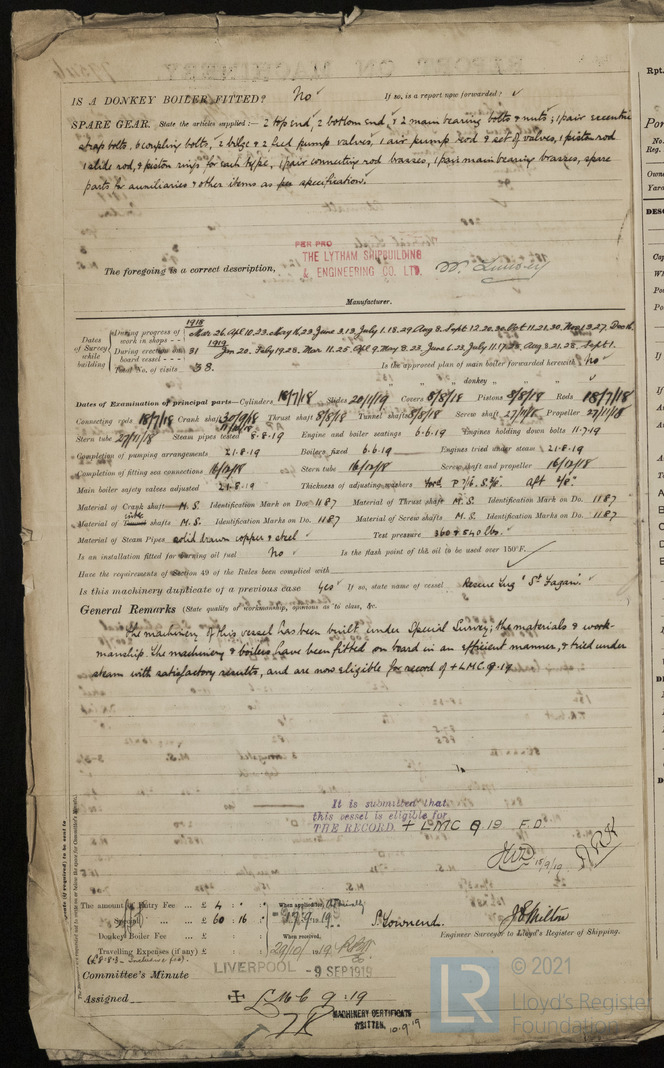 IS A DONKEY BOILER FITTED? No If so, is a report now forwarded?
SPARE GEAR. State the articles supplied:— 2 top end, 2 bottom end, & 2 main bearing bolts & nuts; 1 pair eccentric
strap bolts, 6 coupling bolts, 2 bilge & 2 feed pump valves, 1 air pump rod & set of valves, 1 piston rod
1 slide rod, & piston rings for each type, 1 pair connecting rod brasses, 1 pair main bearing brasses, spare
parts for auxiliaries & other items as per specification.
PER PRO
THE LYTHAM SHIPBUILDING
& ENGINEERING CO. LTD.
The foregoing is a correct description,
Manufacturer.
1918
Dates of Survey while building
During progress of work in shops - - Mar 26. Apl 10.23. May 16.23 June 3.13 July 1.18.29 Aug 8. Sept 12.20.30 Oct 11.21.30. Nov 13.27. Dec 16
1919
During erection on board vessel - - - 31 Jan 20. Feby 19.28. Mar 11.25. Apl 9. May 8.23. June 6.23. July 11.17.25. Aug 8.21.28. Sept 1.
Total No. of visits 38.
Is the approved plan of main boiler forwarded herewith No
" " " donkey " "
Dates of Examination of principal parts—Cylinders 18/7/18 Slides 20/1/19 Covers 8/8/18 Pistons 8/8/18 Rods 18/7/18
Connecting rods 18/7/18 Crank shaft 30/9/18 Thrust shaft 8/8/18 Tunnel shafts 8/8/18 Screw shaft 27/11/18 Propeller 27/11/18
Stern tube 27/11/18 Steam pipes tested 8.8.19 Engine and boiler seatings 6.6.19 Engines holding down bolts 11.7.19
Completion of pumping arrangements 21.8.19 Boilers fixed 6.6.19 Engines tried under steam 21.8.19
Completion of fitting sea connections 16/12/18 Stern tube 16/12/18 Screw shaft and propeller 16/12/18
Main boiler safety valves adjusted 21.8.19 Thickness of adjusting washers
Material of Crank shaft M.S. Identification Mark on Do. 1187 Material of Thrust shaft M.S. Identification Mark on Do. 1187
Material of shafts M.S. Identification Marks on Do. 1187 Material of Screw shafts M.S. Identification Marks on Do. 1187
Material of Steam Pipes solid drawn copper & steel Test pressure 360 & 540 lbs.
Is an installation fitted for burning oil fuel No Is the flash point of the oil to be used over 150°F.
Have the requirements of Section 49 of the Rules been complied with
Is this machinery duplicate of a previous case Yes If so, state name of vessel Rescue Tug "St Fagan".
General Remarks (State quality of workmanship, opinions as to class, &c.
The machinery of this vessel has been built under Special Survey; the materials & work-
manship. The machinery & boilers have been fitted on board in an efficient manner, & tried under
steam with satisfactory results, and are now eligible for record of +LMC. 9.19
It is submitted that
this vessel is eligible for
THE RECORD. + LMC 9 19 F.D.
15/9/19
The amount of Entry Fee ... £ 4 : " : When applied for,
Special ... ... £ 60 : 16 :
Donkey Boiler Fee ... £ : : When received,
Travelling Expenses (if any) £ : : 29/10/1919
S. Townsend.
Engineer Surveyor to Lloyd's Register of Shipping.
Committee's Minute LIVERPOOL - 9 SEP 1919
Assigned + LMC 9:19
MACHINERY CERTIFICATE
WRITTEN. 10.9.19
LR
© 2021
Lloyd's Register
Foundation
Rpt.
Por
No.
Reg.
Owne
Yard
DESC